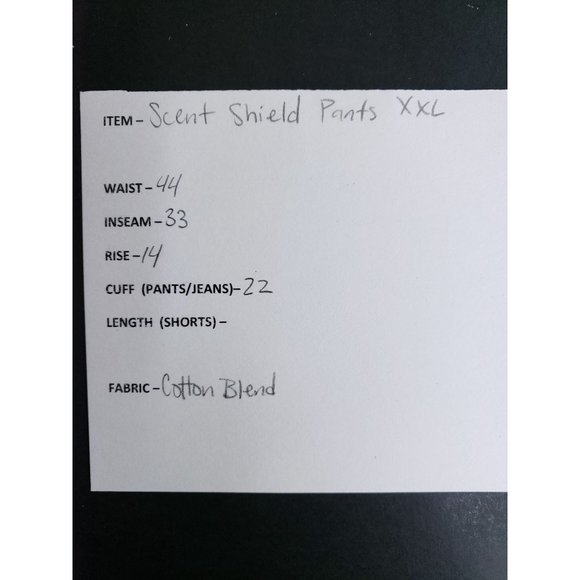 ITEM – Scent Shield Pants XXL
WAIST – 44
INSEAM – 33
RISE – 14
CUFF (PANTS/JEANS)– 22
LENGTH (SHORTS) –
FABRIC – Cotton Blend